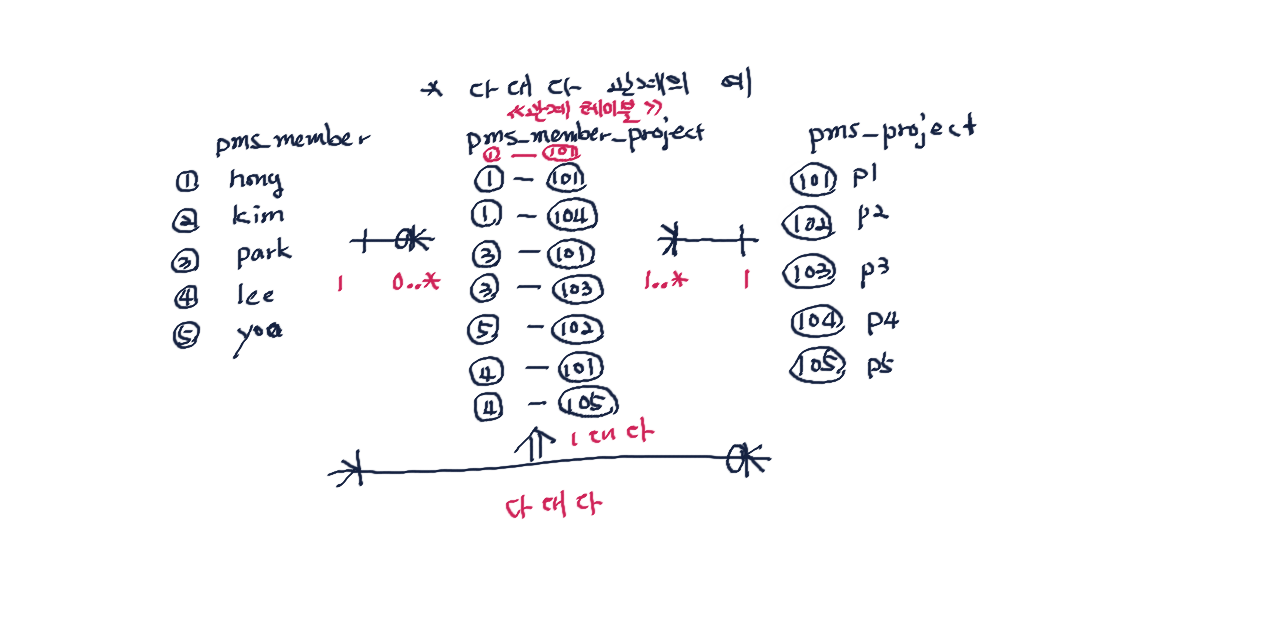 * 다대다 관계의 예
<<관계 테이블>>
pms_member
① hong
② kim
③ park
④ lee
⑤ yoo
1 0..*
pms_member_project
① - 101
① - 101
① - 104
③ - 101
③ - 103
⑤ - 102
④ - 101
④ - 105
1..* 1
pms_project
101 p1
102 p2
103 p3
104 p4
105 p5
1대다
다대다